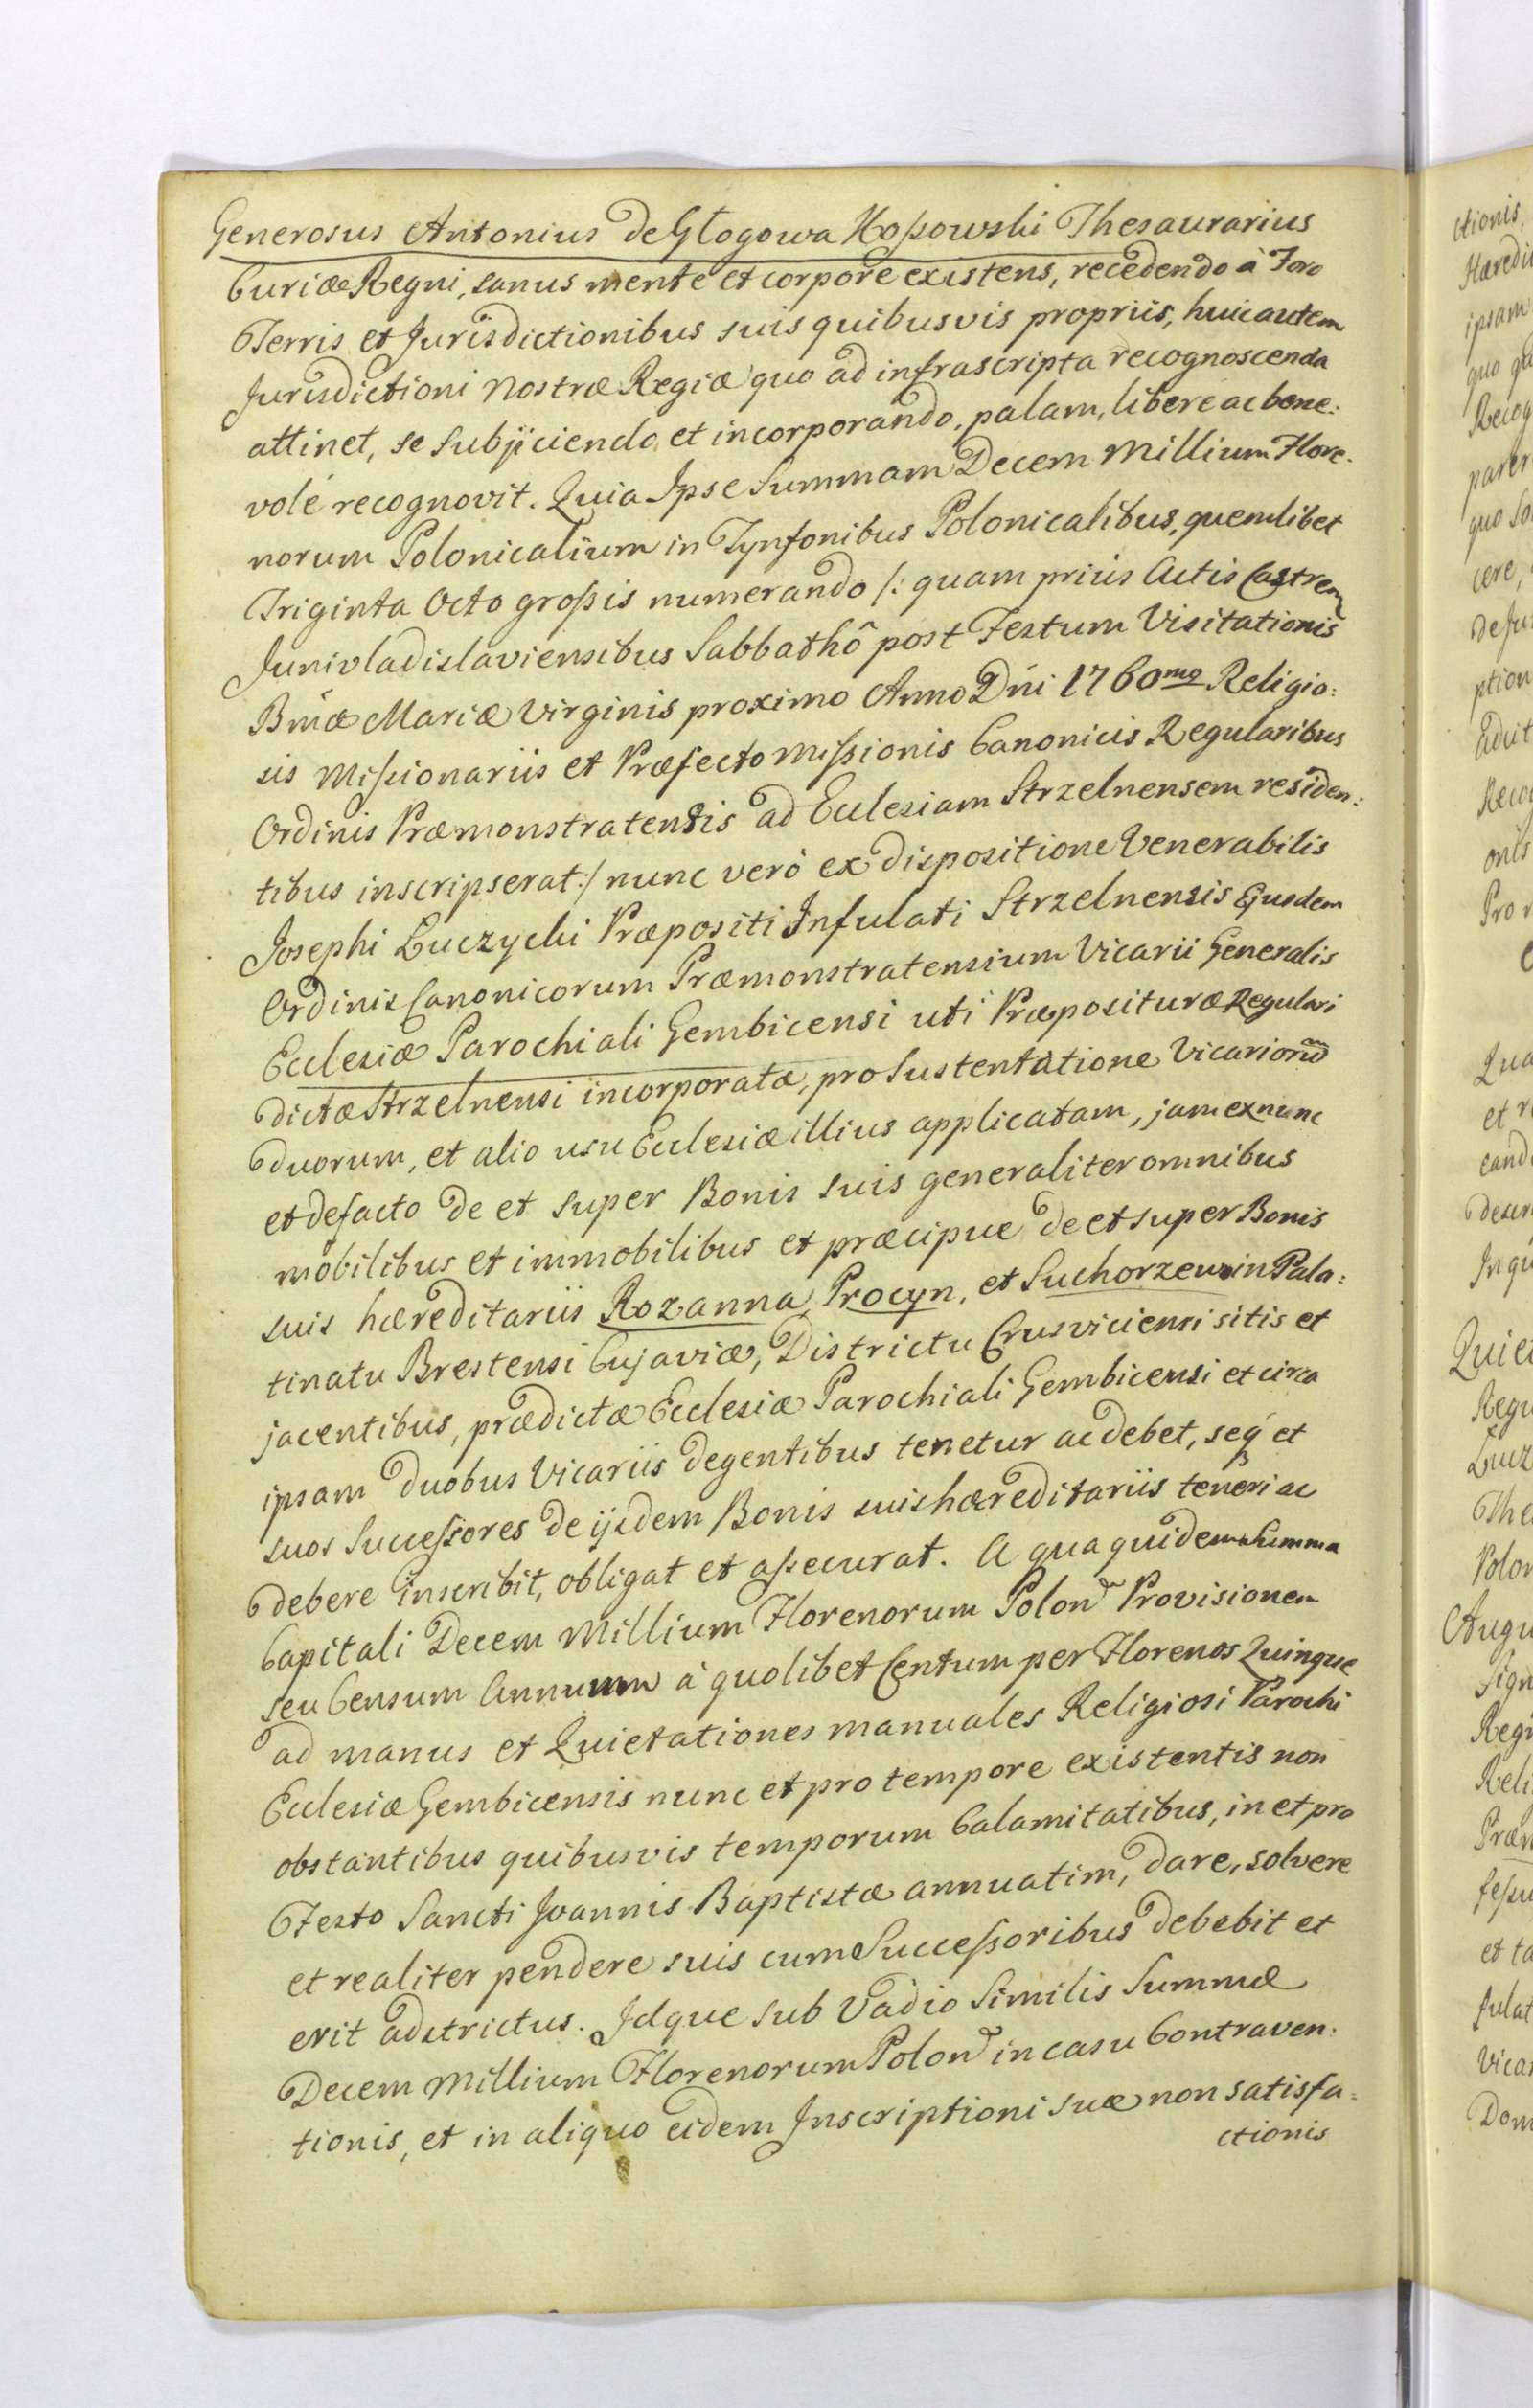 Generosus Antonius de Glogowa Koßowski Thesaurarius
Curiæ Regni, sanus mente et corpore existens, recedendo à Foro
Terris et Jurisdictionibus suis quibusvis propriis, huic autem
Jurisdictioni Nostræ Regiæ quo ad infrascripta recognoscenda
attinet, se subjiciendo et incorporando, palam, libere ac bene:
volé recognovit. Quia Ipse Summam Decem Millium Flore:
norum Polonicalium in Tynfonibus Polonicalibus, quemlibet
Triginta Octo großis numerando /: quam priùs Actis Castren
Junivladislaviensibus Sabbathô post Festum Visitationis
Bmæ Mariæ Virginis proximo Anno Dni 1760mo Religio:
sis Mißionariis et Præfecto Mißionis Canonicis Regularibus
Ordinis Præmonstratensis ad Ecclesiam Strzelnensem residen:
tibus inscripserat :/ nunc verò ex dispositione Venerabilis
Josephi Łuczycki Præpositi Infulati Strzelnensis Ejusdem
Ordinis Canonicorum Præmonstratensium Vicarii Generalis
Ecclesiæ Parochiali Gembicensi uti Præposituræ Regulari
dictæ Strzelnensi incorporatæ, pro Sustentatione Vicariorũ
duorum, et alio usu Ecclesiæ illius applicatam, jam ex nunc
et defacto de et super Bonis suis generaliter omnibus
mobilibus et immobilibus et præcipue de et super Bonis
suis hæreditariis Rozanna, Procyn, et Suchorzew in Pala:
tinatu Brestensi Cujaviæ, Districtu Crusviciensi sitis et
jacentibus, prædictæ Ecclesiæ Parochiali Gembicensi et circa
ipsam duobus Vicariis degentibus tenetur ac debet, seq́ et
suos Succeßores de ijsdem Bonis suis hæreditariis teneri ac
debere inscribit, obligat et aßecurat. A qua quidem Summa
Capitali Decem Millium Florenorum Polon Provisionem
seu Censum Annuum à quolibet Centum per Florenos Quinque
ad manus et Quietationes manuales Religiosi Parochi
Ecclesiæ Gembicensis nunc et pro tempore existentis non
obstantibus quibusvis temporum Calamitatibus, in et pro
Festo Sancti Joannis Baptistæ annuatim, dare, solvere
et realiter pendere suis cum Succeßoribus debebit et
erit adstrictus. Idque sub Vadio Similis Summæ
Decem Millium Florenorum Polon in casu Contraven:
tionis, et in aliquo eidem Inscriptioni suæ non satisfa:
ctionis